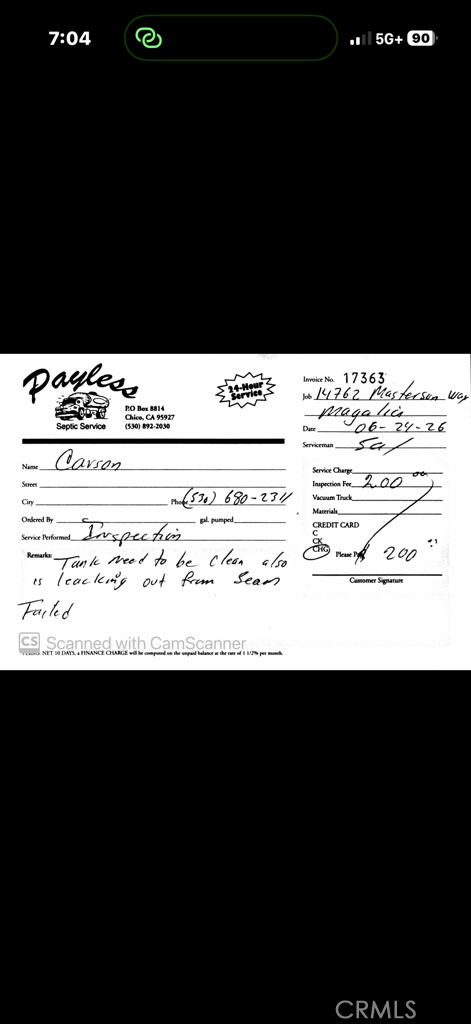 7:04
5G+ 90
Payless
Septic Service
P.O Box 8814
Chico, CA 95927
(530) 892-2030
24-Hour
Service
Invoice No. 17363
Job 14762 Masterson Way
Magalia
Date 06-24-26
Serviceman Sal
Name Carson
Street
City Phone (530) 680-2311
Ordered By gal. pumped
Service Performed Inspection
Remarks: Tank need to be clean also
is leacking out from Seam
Failed
Service Charge
Inspection Fee 200 00
Vacuum Truck
Materials
CREDIT CARD
C
CK
CHG Please Pay $ 200
Customer Signature
CS Scanned with CamScanner
TERMS: NET 10 DAYS, a FINANCE CHARGE will be computed on the unpaid balance at the rate of 1 1/2% per month.
CRMLS